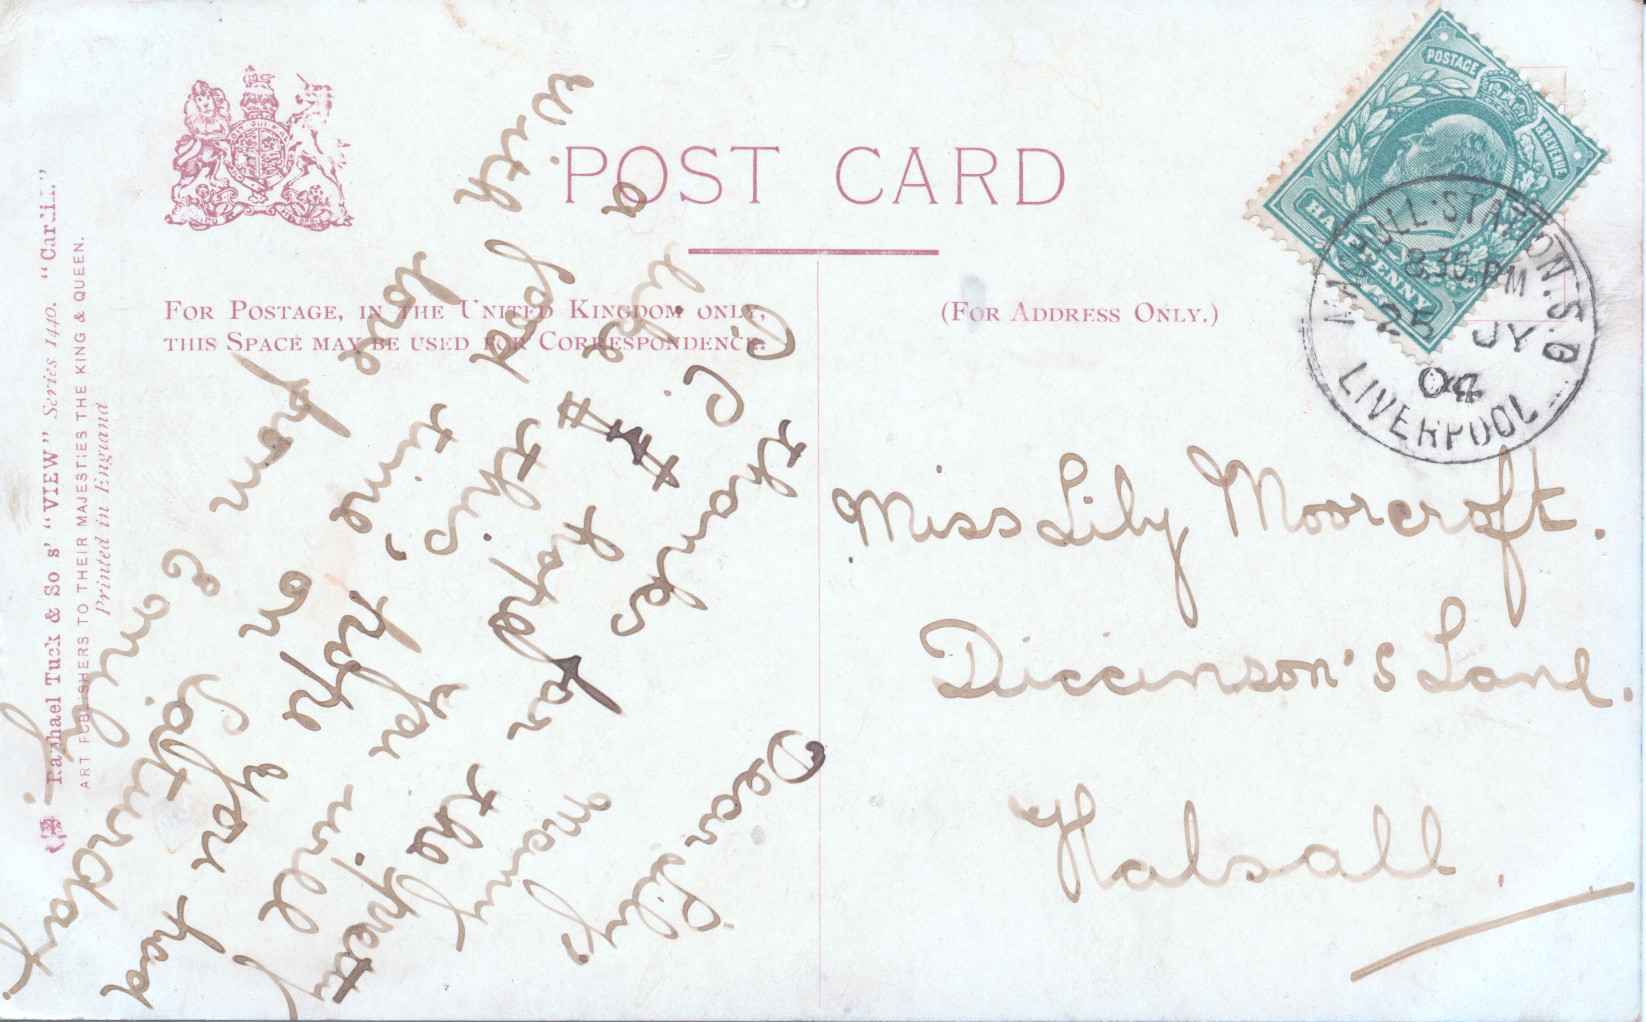 POST CARD
FOR POSTAGE, IN THE UNITED KINGDOM ONLY,
THIS SPACE MAY BE USED FOR CORRESPONDENCE.
(FOR ADDRESS ONLY.)
Raphael Tuck & So s' "VIEW" Series 1440. "Cardiff."
ART PUBLISHERS TO THEIR MAJESTIES THE KING & QUEEN.
Printed in England
POSTAGE & REVENUE
HALF PENNY
STATION. S.O
8.30 PM
25 JY
04
LIVERPOOL
Dear Lily,
many
thanks for the pretty
P.C. I hope you will
like this, hope you had
a good time on Saturday
with love from
Miss Lily Moorcroft.
Diccinson's Lane.
Halsall.